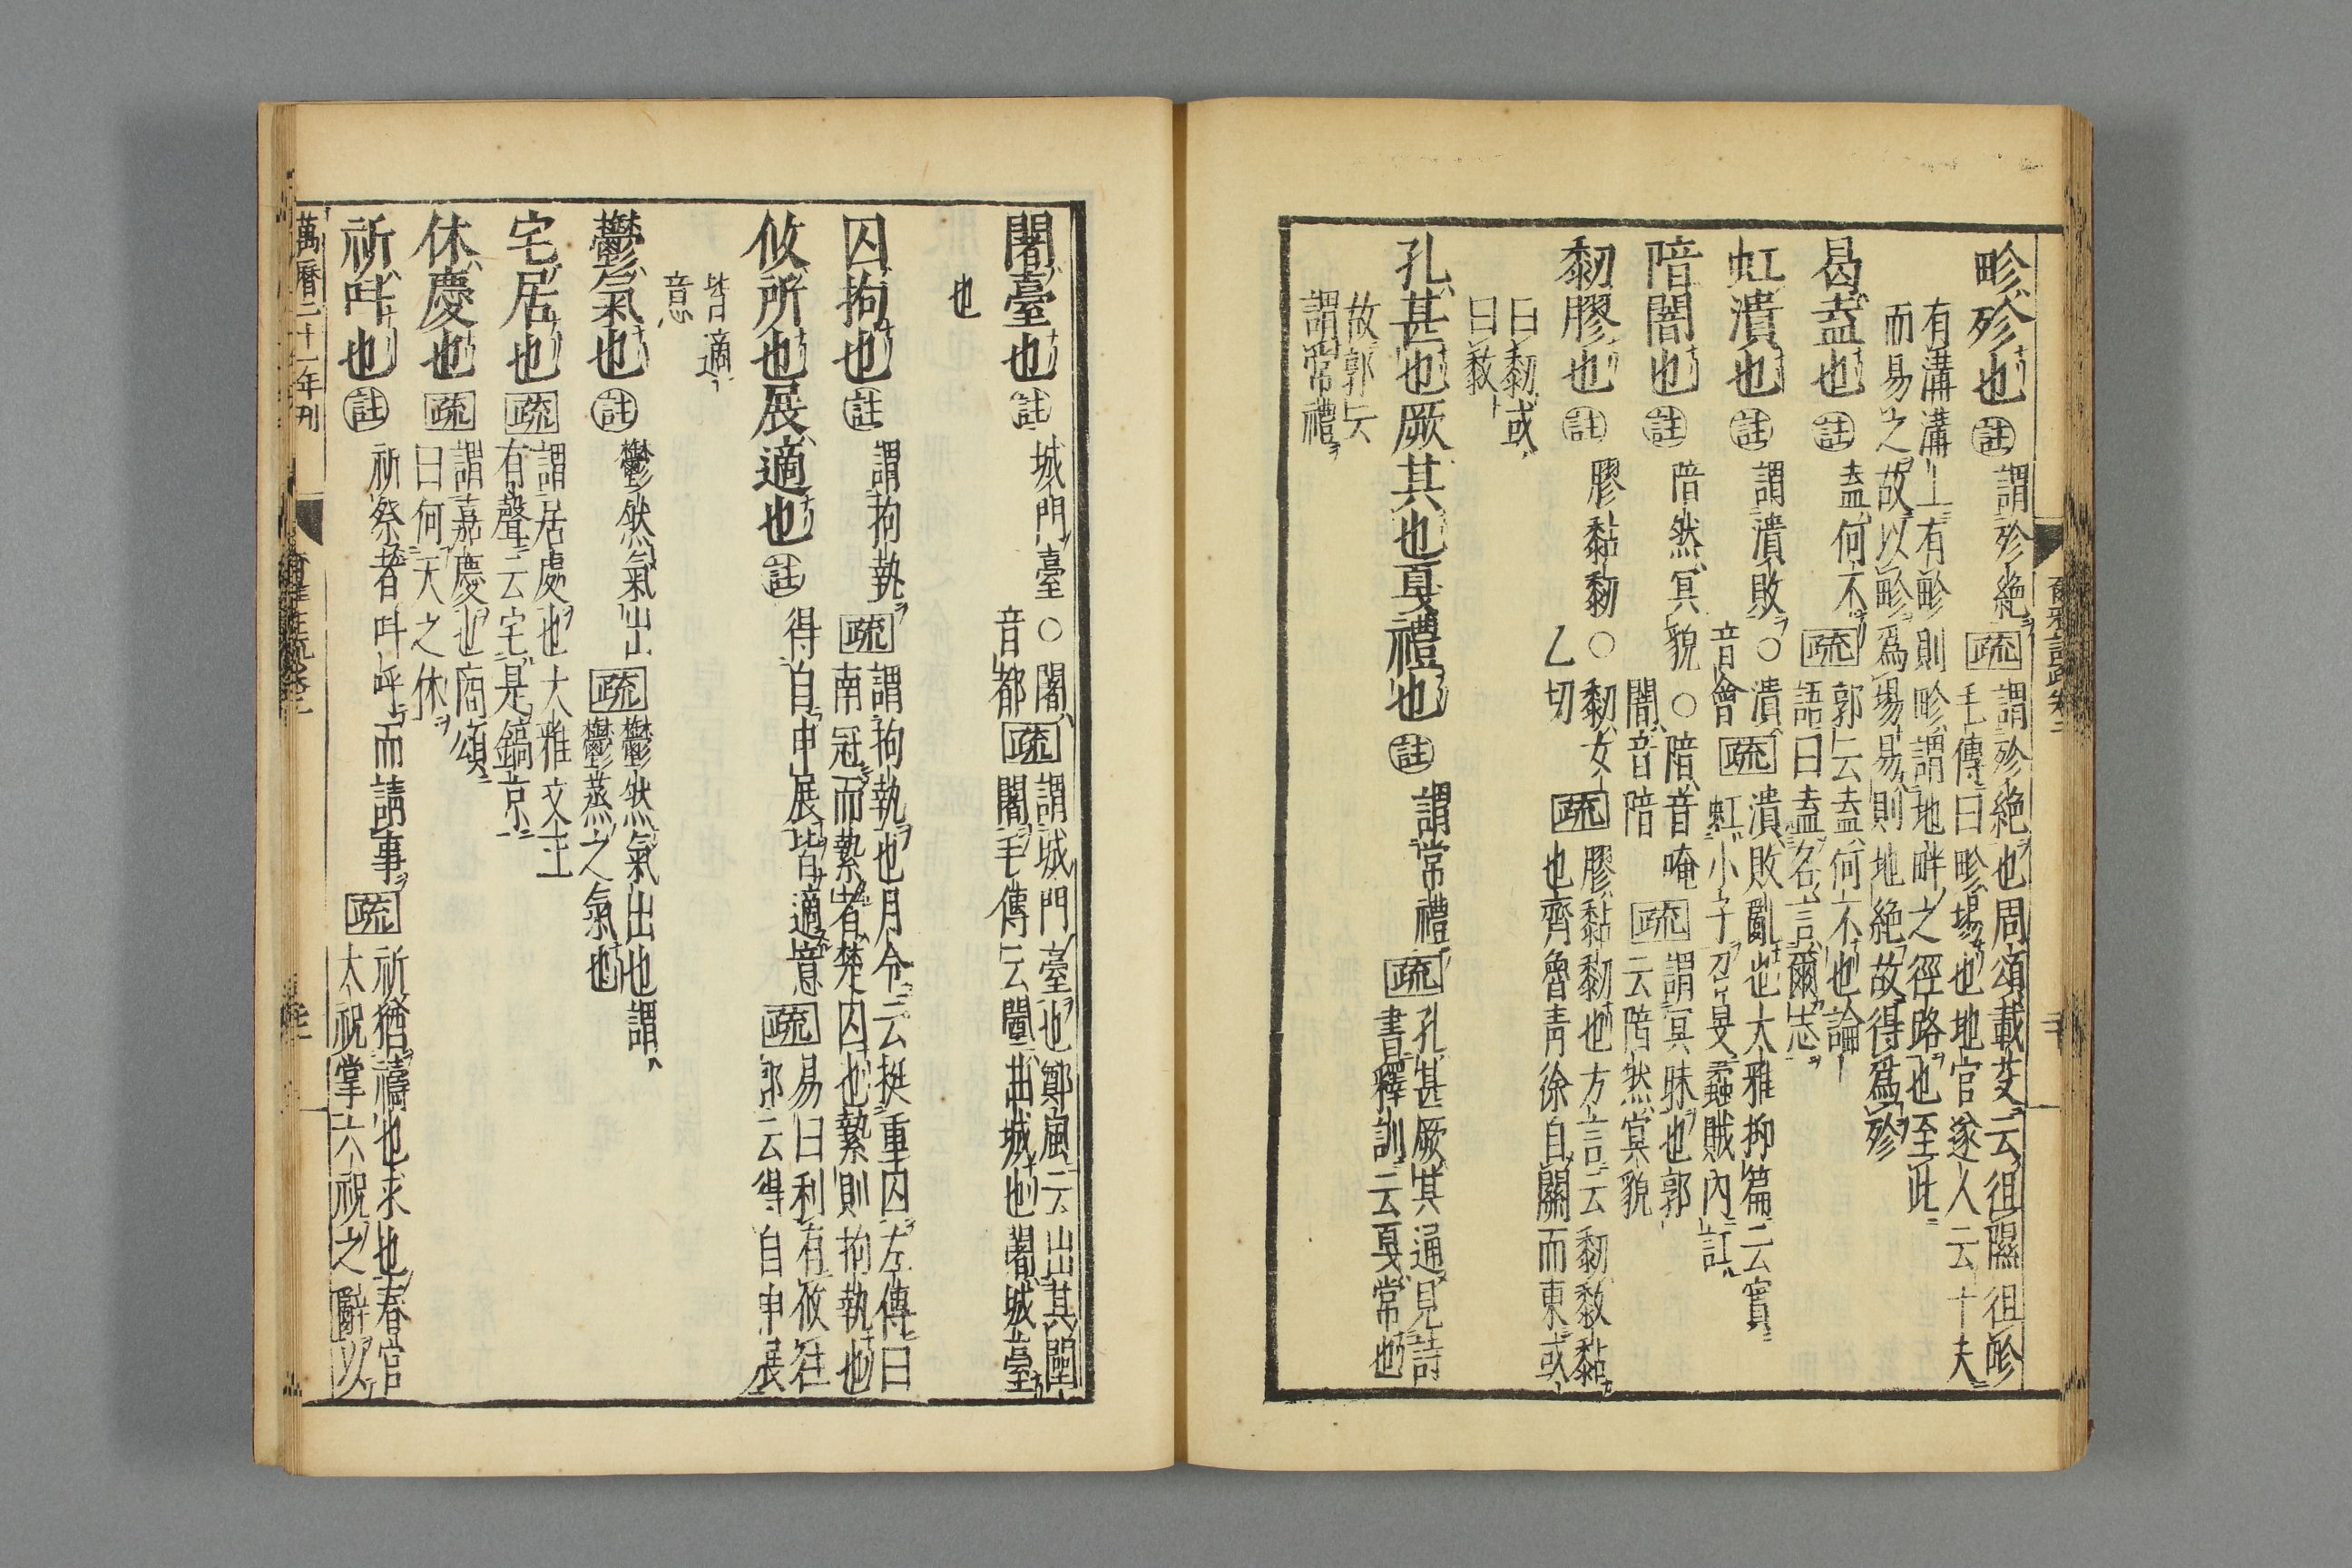 畛殄也 註 謂殄絶 疏 謂殄絶也周頌載芟云徂隰徂畛
毛傳曰畛埸也地官遂人云十夫
有溝溝上有畛則畛謂地畔之徑路也至此
而易之故以畛爲埸易則地絶故得爲殄
曷盍也 註 盍何不 疏 郭云盍何不也論
語曰盍各言爾志
虹潰也 註 謂潰敗 ○潰
音會 疏 潰敗亂也大雅抑篇云實
虹小子召旻云蟊賊內訌
陪闇也 註 陪然冥貌 ○陪音唵
闇音陪 疏 謂冥昧也郭
云陪然冥貌
䵑膠也 註 膠黏䵑 ○䵑女
乙切 疏 膠黏䵑也方言云䵑黏
也齊魯青徐自關而東或
曰䵑或
曰敹
孔甚也厥其也戛禮也 註 謂常禮 疏 孔甚厥其通見詩
書釋訓云戛常也
故郭云
謂常禮
闍臺也 註 城門臺 ○闍
音都 疏 謂城門臺也鄭風云出其闉
闍毛傳云闉曲城也闍城臺
也
囚拘也 註 謂拘執 疏 謂拘執也月令云挺重囚左傳曰
南冠而縶者楚囚也縶則拘執也
攸所也展適也 註 得自申展皆適意 疏 易曰利有攸往
郭云得自申展
皆適
意
鬱氣也 註 鬱然氣出 疏 鬱然氣出也謂
鬱蒸之氣也
宅居也 疏 謂居處也大雅文王
有聲云宅是鎬京
休慶也 疏 謂嘉慶也商頌
曰何天之休
祈叫也 註 祈祭者叫呼而請事 疏 祈猶禱也求也春官
太祝掌六祝之辭以
萬曆二十一年刋